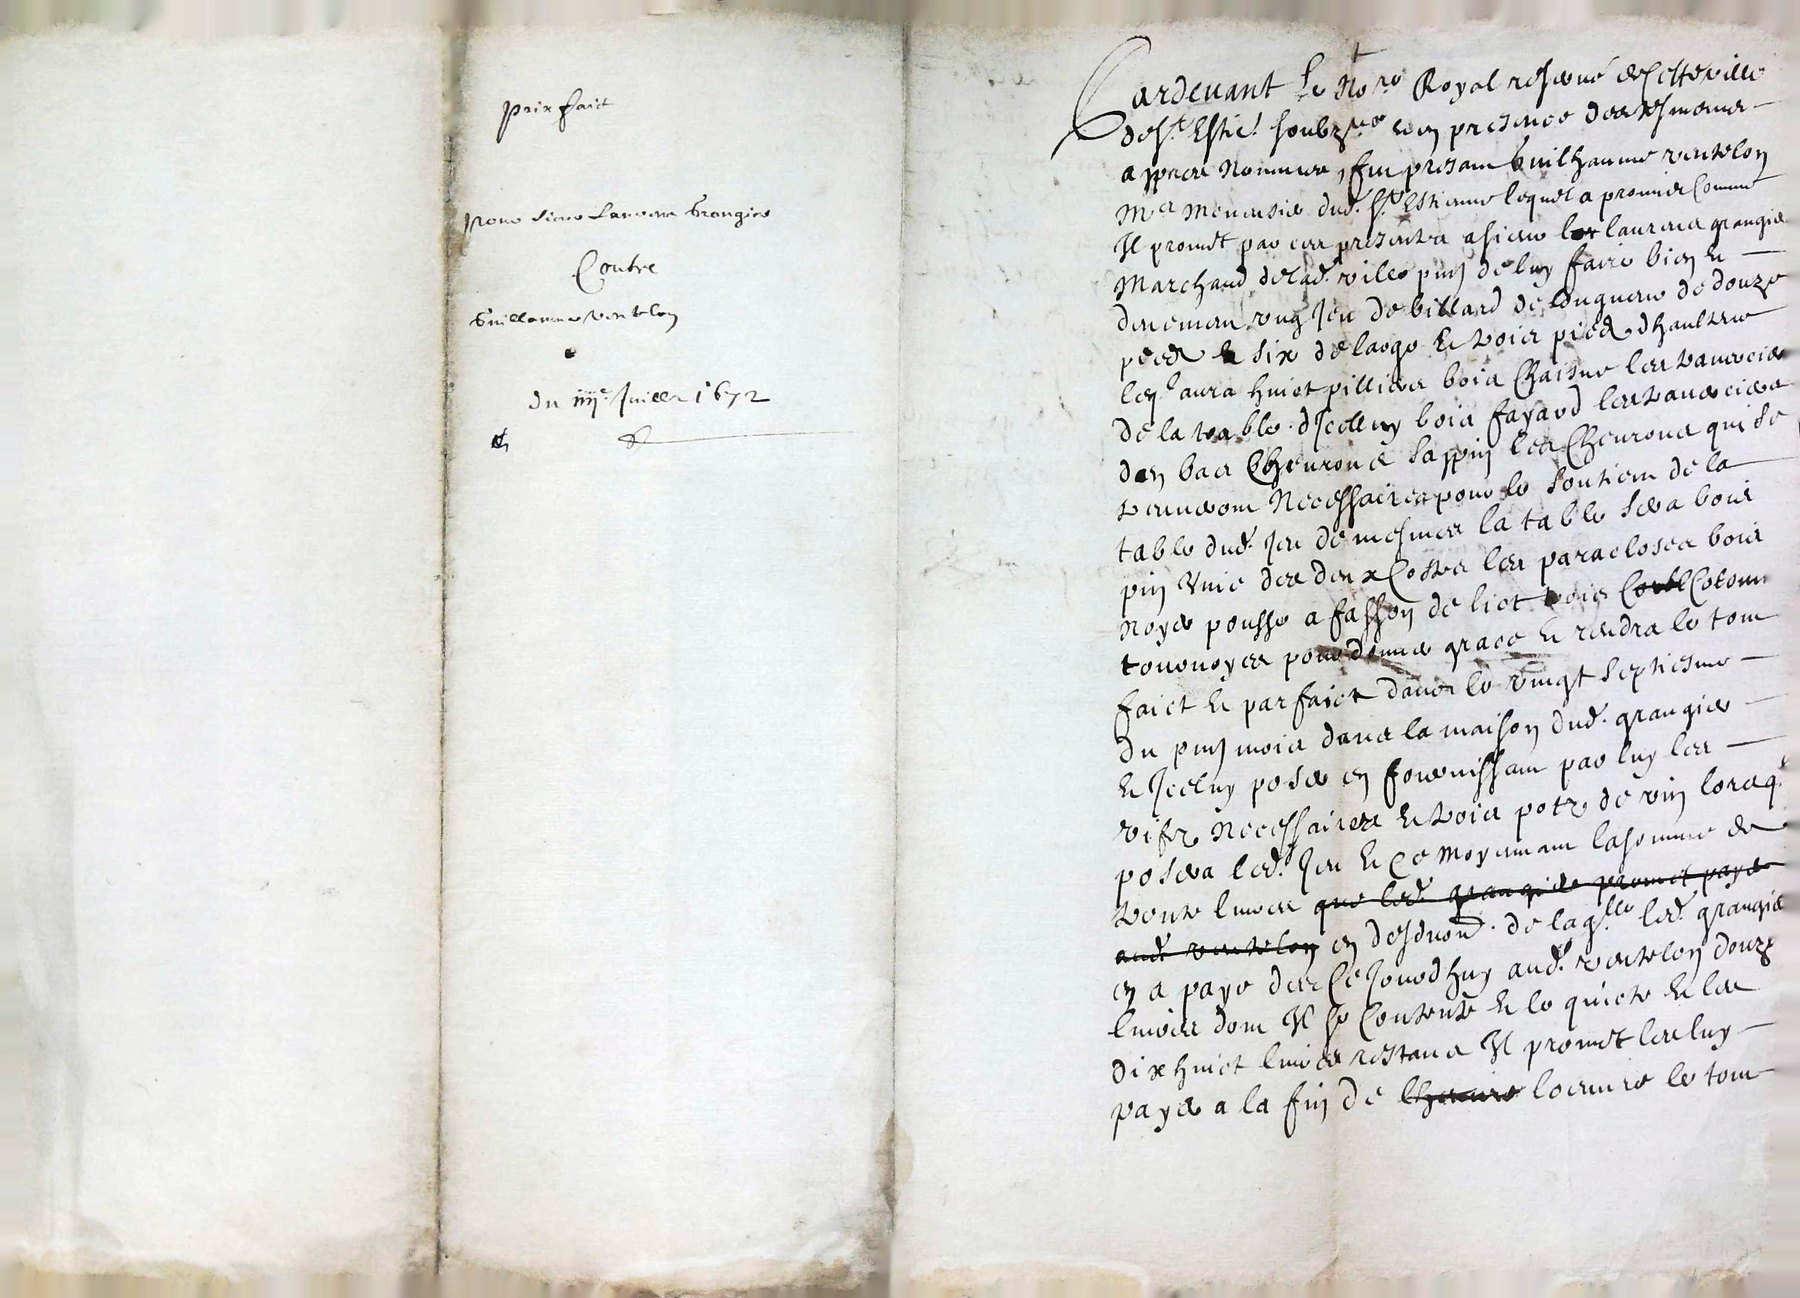 prix faict
pour sieur Laurens Grangier
Contre
Guillaume vertelon
du iiiie Juillet 1672
Pardevant Le Nore Royal reservé de Cette ville
de St Estie soubzné en presence des tesmoins
appres Nommes, fut presant Guilhaume vertelon
Me Menusier dud. St Estienne lequel a promis Comme
Il promet par ces presentes a sieur laurens grangier
Marchand de lad. ville pnt de luy faire bien et
deuement ung Jeu de billard de longueur de douze
pieds et six de large et trois pieds dhaulteur
leql aura huict pilliers bois Chaisne les traverciers
de la table dIcelluy bois fayard les traverciers
den bas Chevrons sappin les Chevrons qui se
treuveront Necessaires pour le soutient de la
table dud. Jeu de mesmes la table sera bois
pin Unie des deux Costes les paracloses bois
Noyer pousse a fasson de lict trois Colonnes
tournoyees pour donner grace et rendra le tout
faict et parfaict dans le vingt septiesme
du pnt mois dans la maison dud. grangier
et Icelluy poser en fournissant par luy les
vifz Necessaires et trois potz de vin lorsq.
posera led. Jeu et Ce moyennant la somme de
trente livres que led. grangier promet payer
aud. vertelon en desduon. de laqlle led. grangier
en a paye des Ce Jourdhuy aud. vertelon douze
livres dont Il se Contente et le quicte et les
dix huict livres restans Il promet les luy
payer a la fin de loeuvre le tout